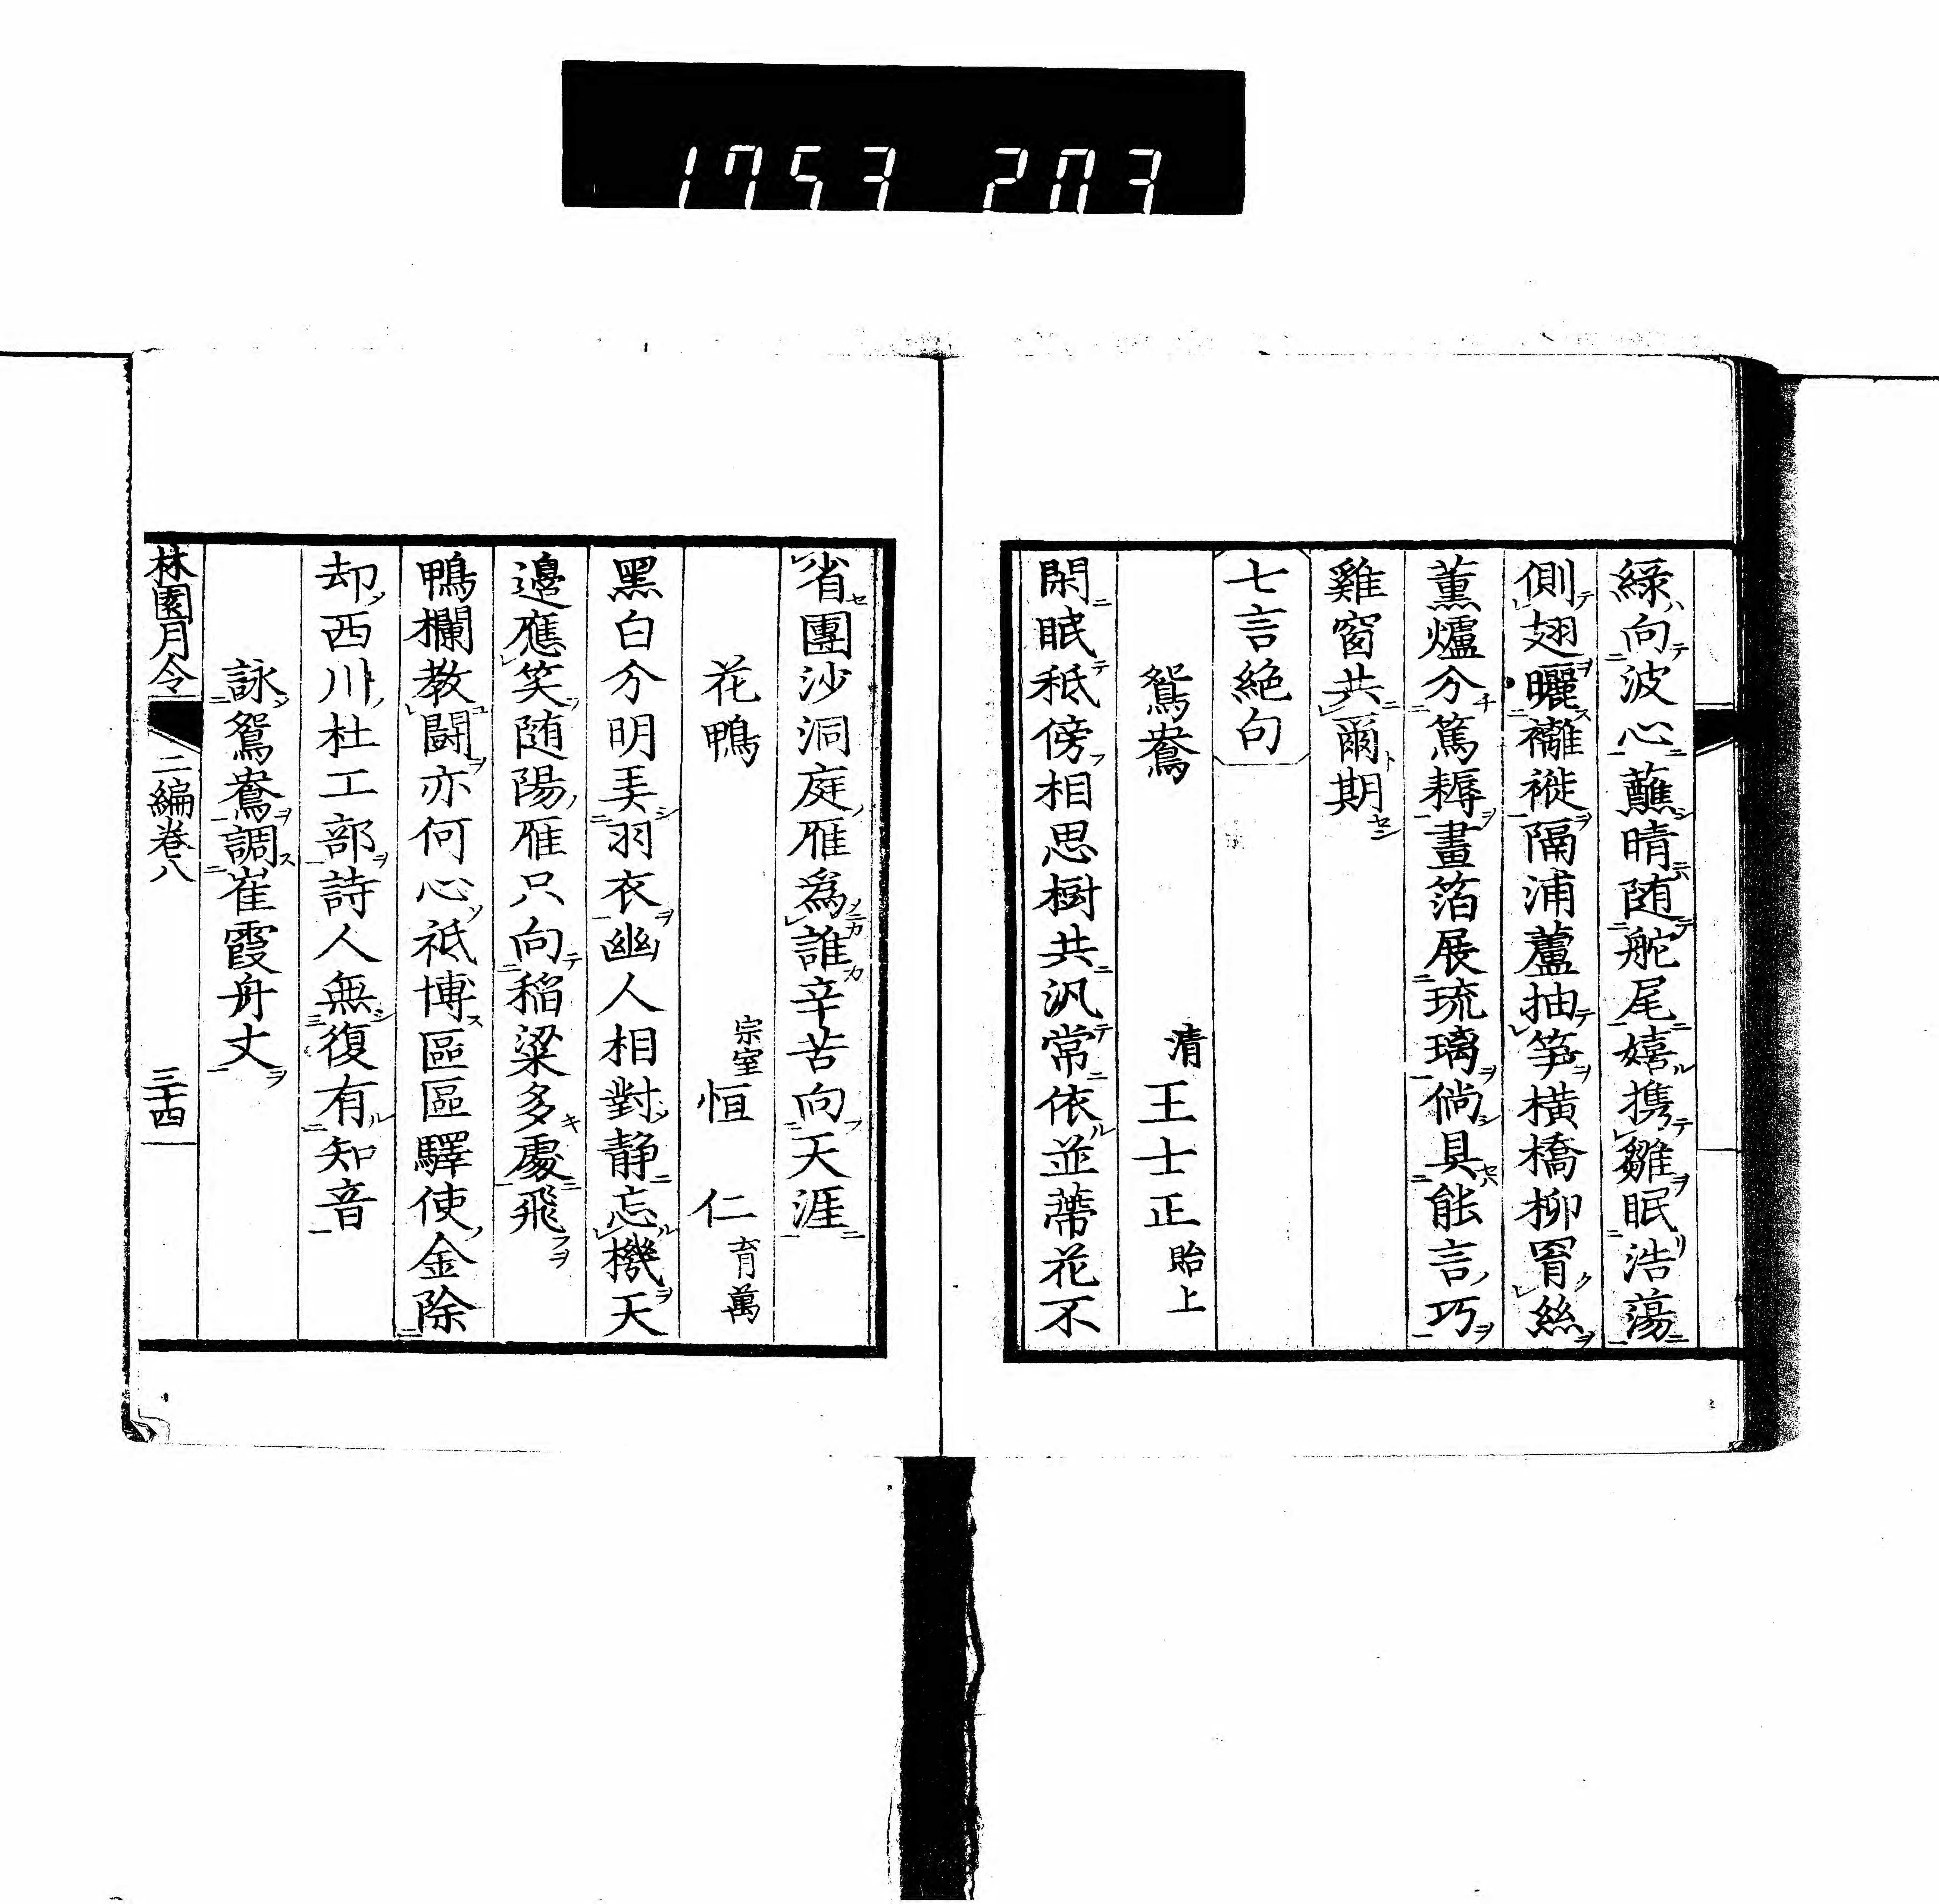 1753 203
緑向波心蘸晴随舵尾嬉携雛眠浩蕩
側翅曬襳褷隔浦蘆抽笋橫橋柳罥絲
薫爐分篤耨畫箔展琉璃倘具能言巧
雞窗共爾期
七言絶句
鴛鴦 清 王士正 貽上
閑眠秪傍相思樹共汎常依並蔕花不
省團沙洞庭雁爲誰辛苦向天涯
花鴨 宗室 恒仁 育萬
黑白分明弄羽衣幽人相對静忘機天
邊應笑随陽雁只向稻粱多處飛
鴨欄教鬪亦何心祇博區區驛使金除
却西川杜工部詩人無復有知音
詠鴛鴦調崔霞舟丈
林園月令 二編卷八 三十四